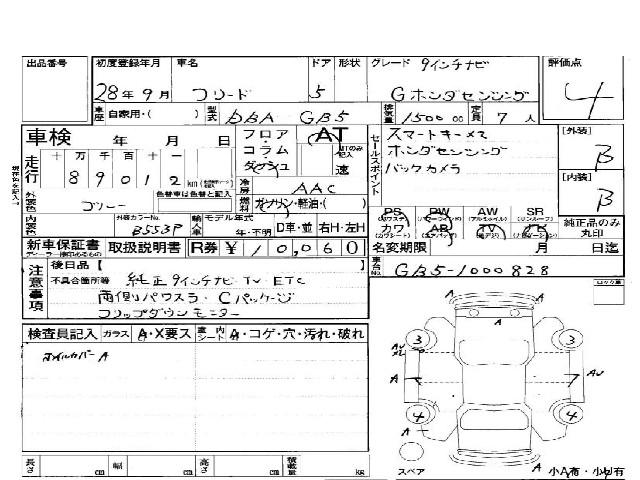 出品番号
初度登録年月 28年9月
車名 フリード
ドア 5
形状
グレード 9インチナビ
Gホンダセンシング
評価点 4
車歴 自家用・( )
型式 DBA-GB5
排気量 1500 00
定員 7人
車検 年 月 日
フロア・コラム・ダクシュ
AT
MTのみ記入
速
セールスポイント
スマートキー×2
ホンダセンシング
バックカメラ
[外装] B
[内装] B
走行 十万千百十一
89012 km
冷房 AAC
外装色 ブルー
色替車は色替と記入
燃料 ガソリン・軽油・( )
内装色
外装カラーNo. B553P
輸入車 モデル年式
年・不明
D車・並
右H・左H
PS PW AW SR
カワ AB TV ナビ
純正品のみ丸印
新車保証書
ディーラー捺印あるもの
取扱説明書
R券 ¥10,060
名変期限 月 日迄
車台No. GB5-1000828
注意事項
後日品【
不具合箇所等
純正9インチナビ TV ETC
両側パワスラ・Cパッケージ
フリップダウンモニター
検査員記入
ガラス A・X要ス
室内シート A・コゲ・穴・汚れ・破れ
オイルカバーA
A
A
3 3
AU
X2
AU
A
4 4
A
A
スペア
小A有・小凹有
長さ cm
幅 cm
高さ cm
積載量 kg